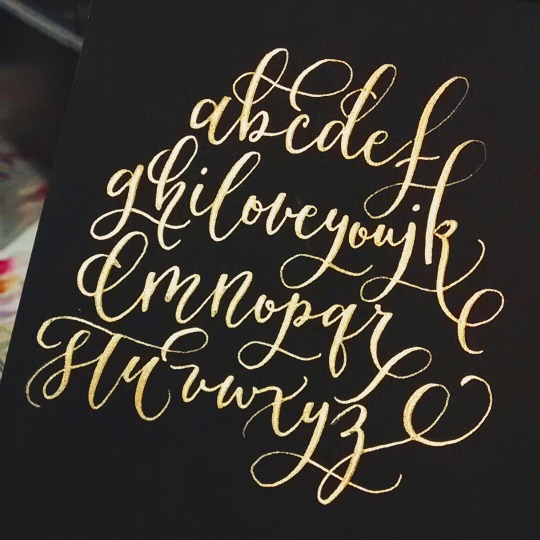 abcdef
ghiloveyoujk
lmnopqr
stuvwxyz